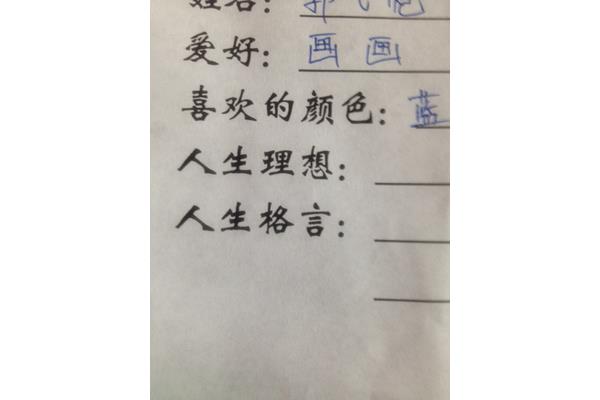 姓名：
爱好：画画
喜欢的颜色：蓝
人生理想：
人生格言：